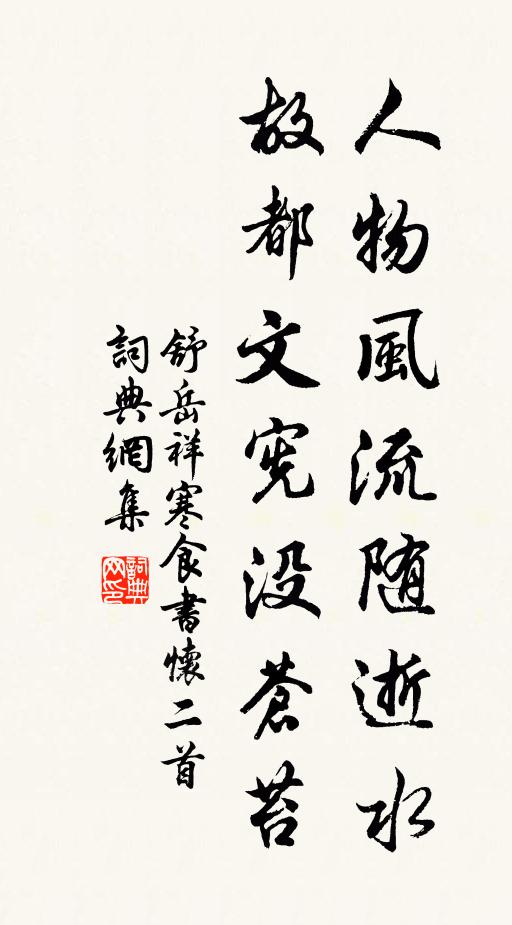 人物風流随逝水
故都文宪没蒼苔
舒岳祥寒食書懷二首
詞典網集
詞典网印